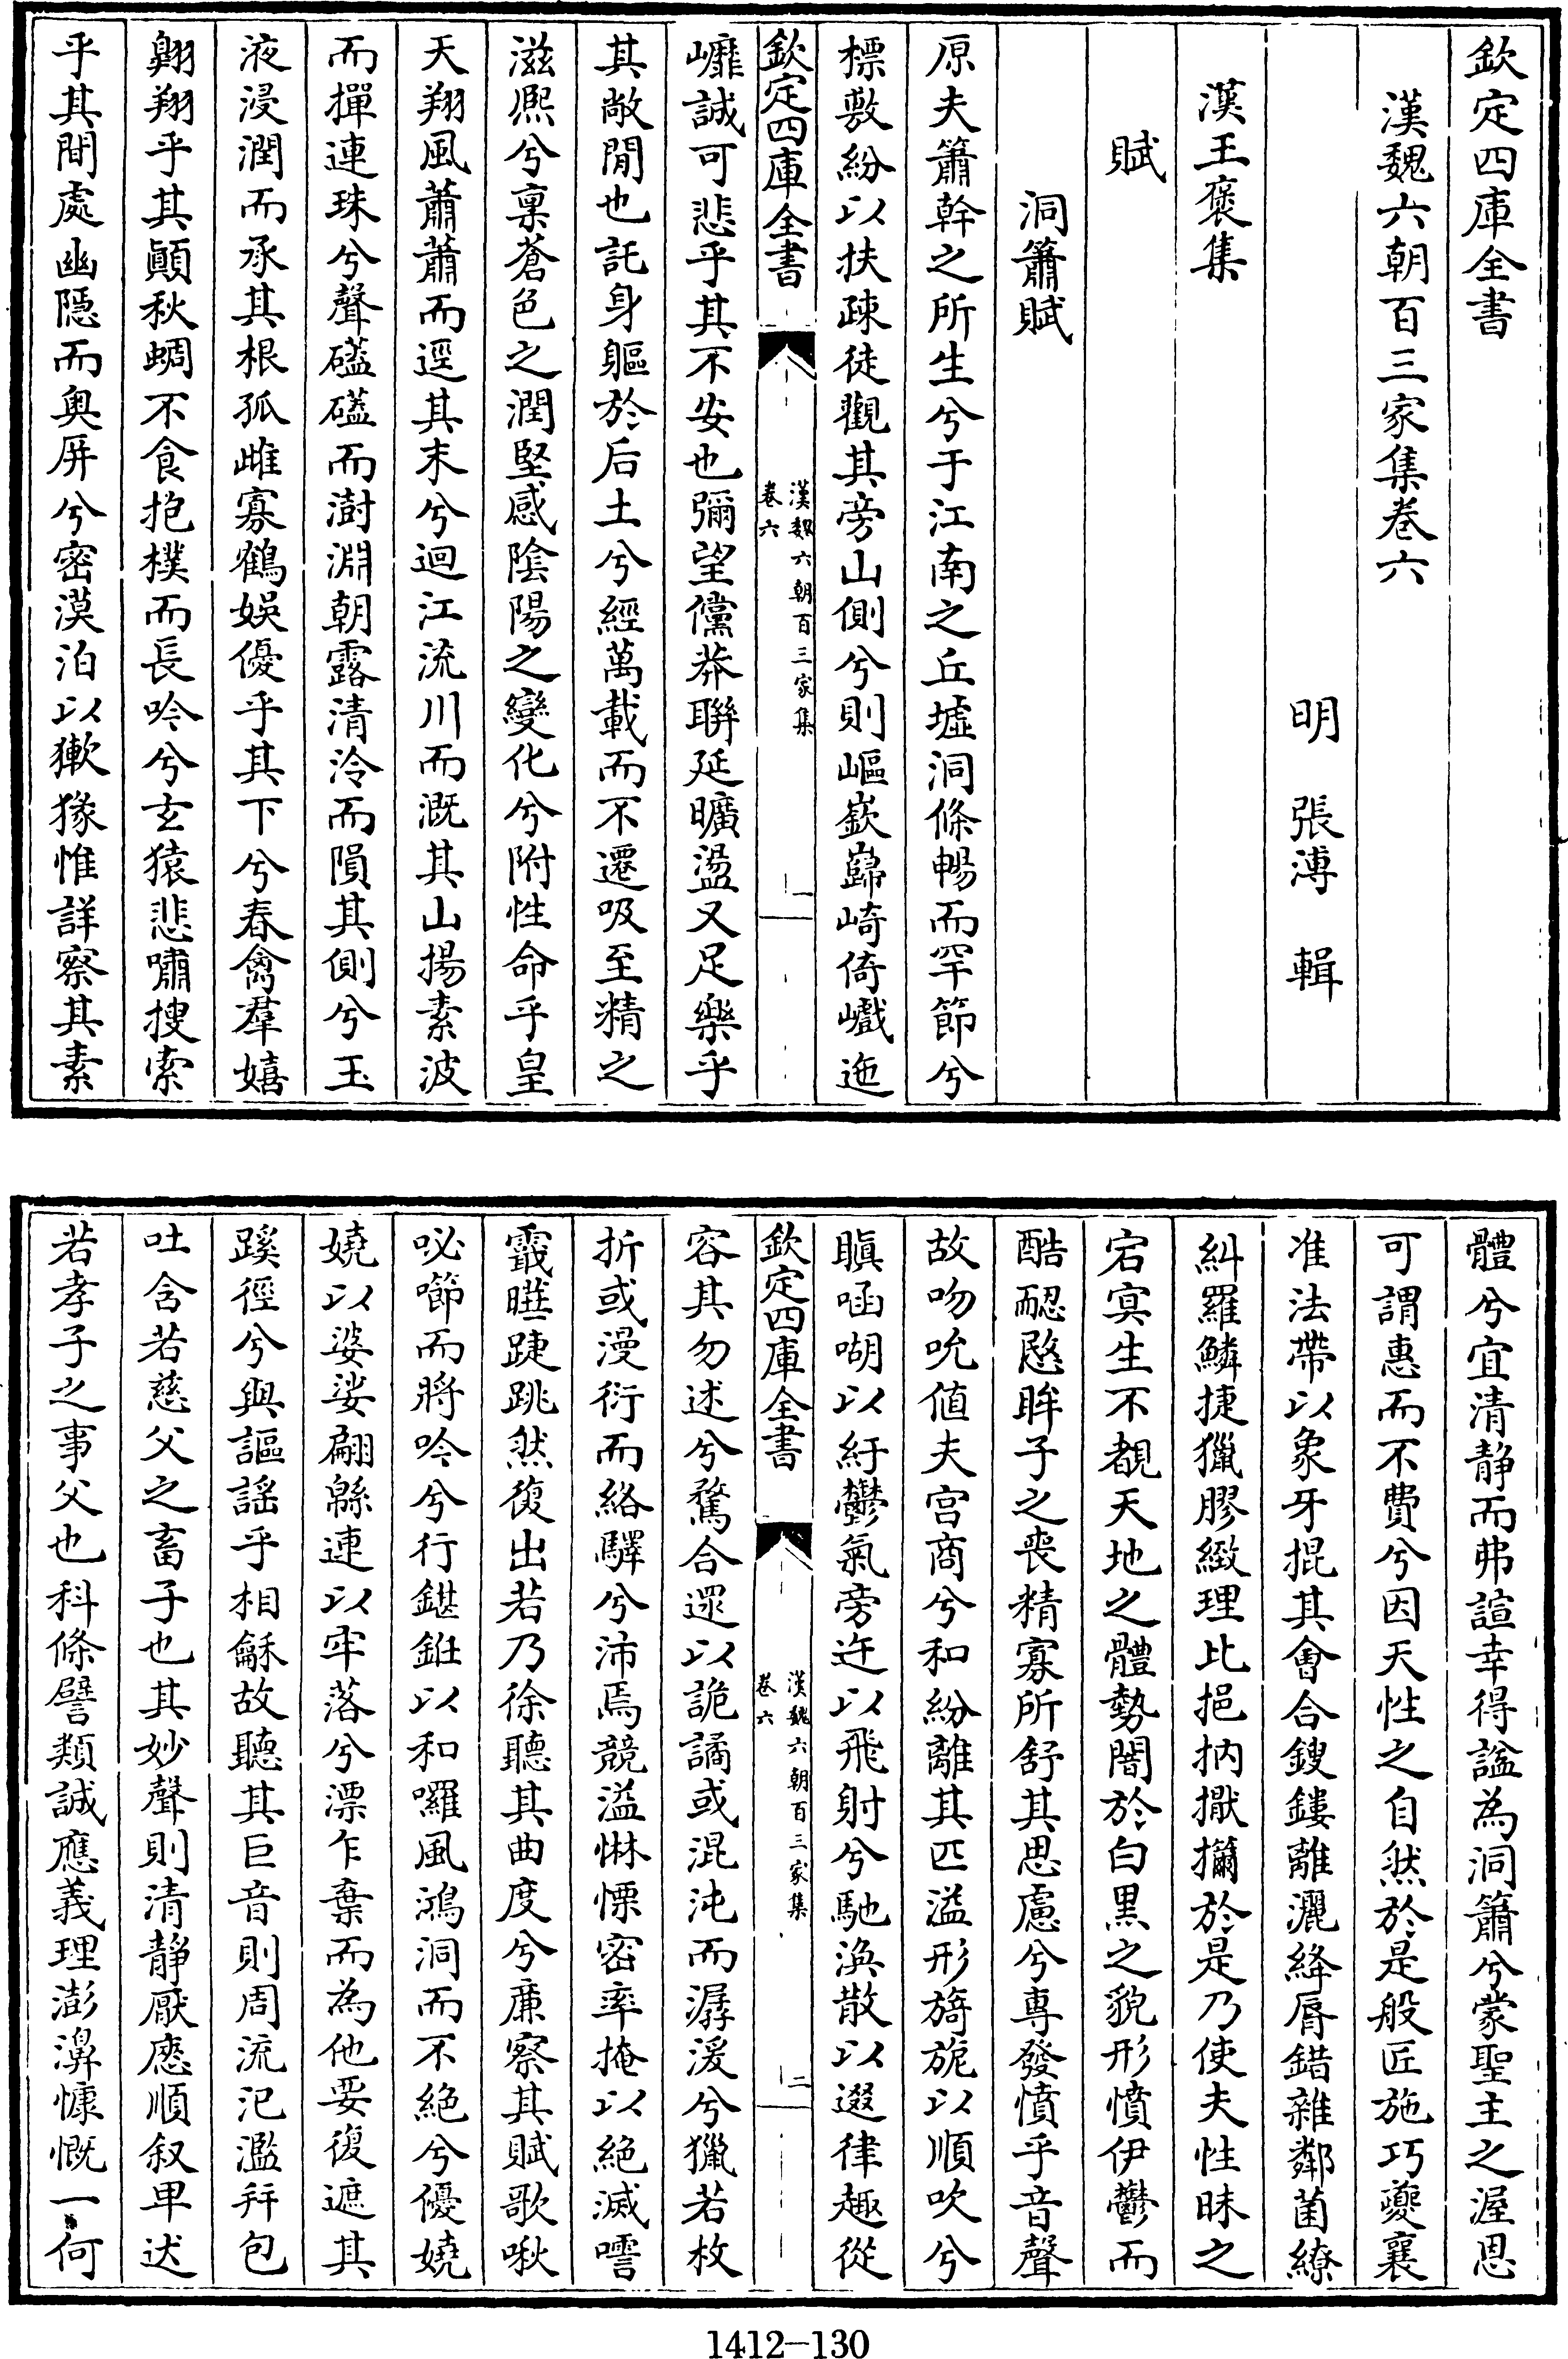 欽定四庫全書
漢魏六朝百三家集卷六
明　張溥　輯
漢王褒集
賦
洞簫賦
原夫簫幹之所生兮于江南之丘墟洞條暢而罕節兮
標敷紛以扶疎徒觀其旁山側兮則嶇嶔巋崎倚巇迤
欽定四庫全書
漢魏六朝百三家集
卷六
一
㠧誠可悲乎其不安也彌望儻莽聨延曠盪又足樂乎
其敞閒也託身軀於后土兮經萬載而不遷吸至精之
滋熈兮稟蒼色之潤堅感隂陽之變化兮附性命乎皇
天翔風蕭蕭而逕其末兮迴江流川而溉其山揚素波
而揮連珠兮聲礚礚而澍淵朝露清泠而隕其側兮玉
液浸潤而承其根孤雌寡鶴娛優乎其下兮春禽羣嬉
翱翔乎其顚秋蜩不食抱樸而長吟兮玄猿悲嘯搜索
乎其間處幽隱而奥屏兮密漠泊以獙猭惟詳察其素
體兮宜清静而弗諠幸得諡為洞簫兮蒙聖主之渥恩
可謂惠而不費兮因天性之自然於是般匠施巧夔襄
准法帶以象牙掍其㑹合鎪鏤離灑絳脣錯雜鄰菌繚
糾羅鱗捷獵膠緻理比挹抐擫㩶於是乃使夫性昧之
宕冥生不覩天地之體勢闇於白黒之貌形憤伊鬱而
酷䎡愍眸子之喪精寡所舒其思慮兮專發憤乎音聲
故吻吮值夫宫商兮和紛離其匹溢形旖旎以順吹兮
瞋㖤㗅以紆鬱氣旁迕以飛射兮馳渙散以逫律趣從
欽定四庫全書
漢魏六朝百三家集
卷六
二
容其勿述兮騖合遝以詭譎或混沌而潺湲兮獵若枚
折或漫衍而絡驛兮沛焉競溢惏慄密率掩以絶滅㗼
霵曄踕跳然復出若乃徐聽其曲度兮亷察其賦歌啾
咇㘉而將吟兮行鍖銋以和囉風鴻洞而不絶兮優嬈
嬈以婆娑翩緜連以牢落兮漂乍棄而為他要復遮其
蹊徑兮與謳謡乎相龢故聽其巨音則周流氾濫并包
吐含若慈父之畜子也其妙聲則清静厭㥷順叙卑迖
若孝子之事父也科條譬類誠應義理澎濞慷慨一何
1412-130